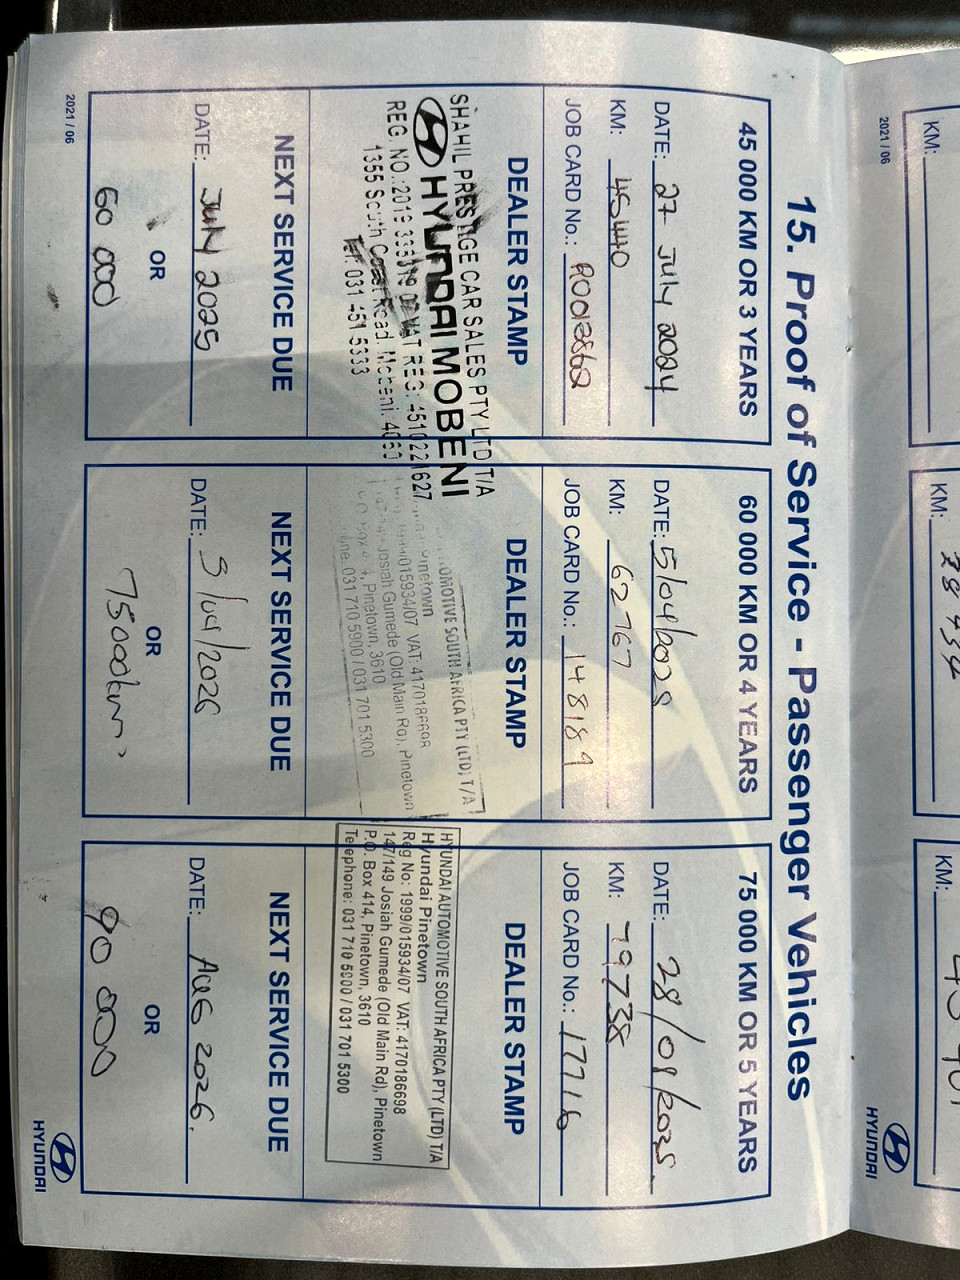 15. Proof of Service - Passenger Vehicles
45 000 KM OR 3 YEARS
DATE: 27 July 2024
KM: 45440
JOB CARD No.:
DEALER STAMP
SHAHIL PRESTIGE CAR SALES PTY LTD T/A
HYUNDAI MOBENI
REG NO.:2019 335319 07 VAT REG: 4510221627
1355 South Coast Road. Mobeni. 4060
Tel: 031 451 5333
NEXT SERVICE DUE
DATE: July 2025
OR
60 000
2021 / 06
60 000 KM OR 4 YEARS
DATE: 5/04/2025
KM: 62767
JOB CARD No.: 148189
DEALER STAMP
OMOTIVE SOUTH AFRICA PTY (LTD) T/A
Pinetown
1999/015934/07 VAT: 4170186698
Josiah Gumede (Old Main Rd), Pinetown
Pinetown, 3610
031 710 5900 / 031 701 5300
NEXT SERVICE DUE
DATE: 5/04/2026
OR
75000km
75 000 KM OR 5 YEARS
DATE: 28/08/2025
KM: 79738
JOB CARD No.: 17716
DEALER STAMP
HYUNDAI AUTOMOTIVE SOUTH AFRICA PTY (LTD) T/A
Hyundai Pinetown
Reg No: 1999/015934/07 VAT: 4170186698
147/149 Josiah Gumede (Old Main Rd), Pinetown
P.O. Box 414, Pinetown, 3610
Telephone: 031 710 5900 / 031 701 5300
NEXT SERVICE DUE
DATE: AUG 2026.
OR
90 000
HYUNDAI
KM:
KM:
KM:
2021 / 06
HYUNDAI